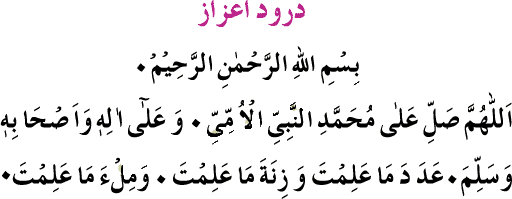 درود اعزاز
بِسْمِ اللهِ الرَّحْمٰنِ الرَّحِيْمِ۰
اَللّٰهُمَّ صَلِّ عَلٰى مُحَمَّدِ النَّبِيِّ الْاُ مِّيِّ ۰ وَ عَلٰٓى اٰلِهٖ وَاَصْحَا بِهٖ
وَسَلِّمَ۰ عَدَ دَ مَا عَلِمْتَ وَ زِنَةَ مَا عَلِمْتَ ۰ وَمِلْءَ مَا عَلِمْتَ۰